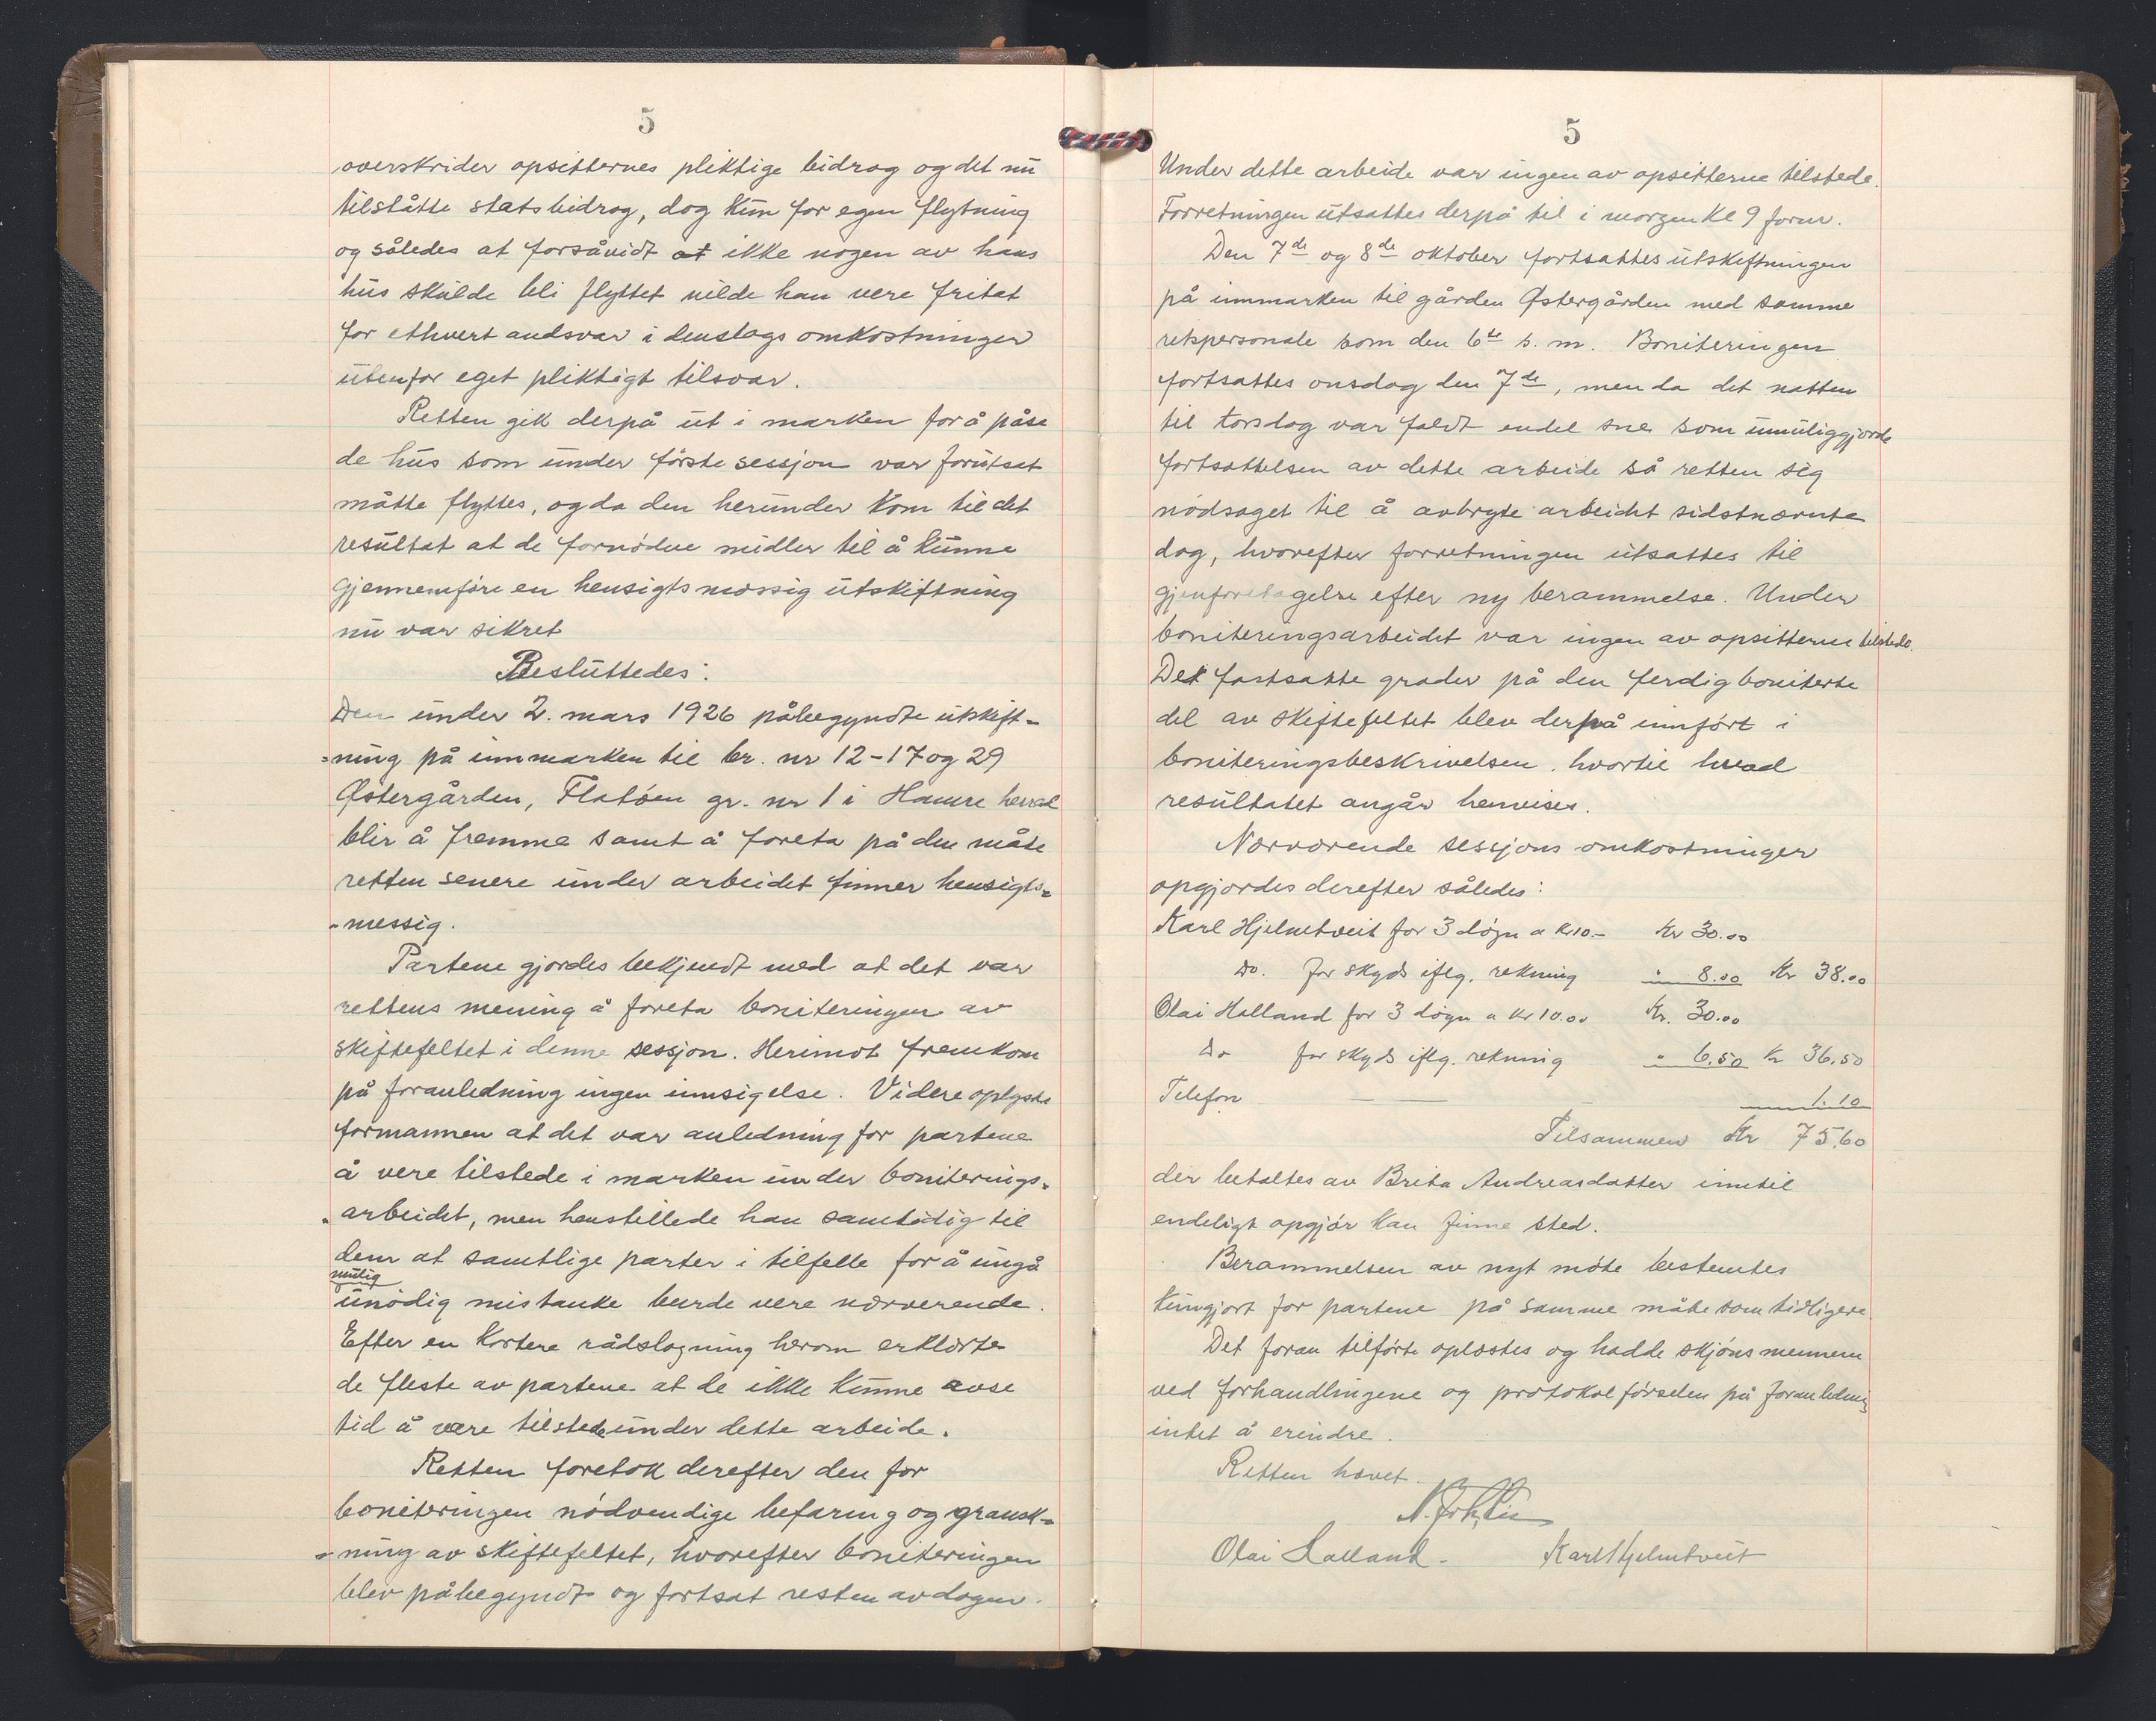 5
overskrider opsitternes pliktige bidrag og det nu
tilståtte statsbidrag, dog kun for egen flytning
og således at forsåvidt at ikke nogen av hans
hus skulde bli flyttet vilde han vere fritat
for ethvert andsvar i denslags omkostninger
utenfor eget pliktigt tilsvar.
Retten gik derpå ut i marken for å påse
de hus som under förste sessjon var forutsat
måtte flyttes, og da den herunder kom til det
resultat at de fornödne midler til å kunne
gjennemföre en hensigtsmæssig utskiftning
nu var sikret
Besluttedes:
Den under 2. mars 1926 påbegyndte utskift-
-ning på innmarken til br. nr 12-17 og 29
Østergården, Flatöen gr. nr 1 i Hamre herred
blir å fremme samt å foreta på den måte
retten senere under arbeidet finner hensigts-
-messig.
Partene gjordes bekjendt med at det var
rettens mening å foreta boniteringen av
skiftefeltet i denne sessjon. Herimot fremkom
på foranledning ingen innsigelse. Videre oplyste
formannen at det var anledning for partene
å vere tilstede i marken under boniterings-
-arbeidet, men henstillede han samtidig til
dem at samtlige parter i tilfelle for å ungå
mulig
unödig mistanke burde vere nærverende.
Efter en kortere rådslagning herom erklærte
de fleste av partene at de ikke kunne avse
tid å være tilstede under dette arbeide.
Retten foretok derefter den for
boniteringen nödvendige befaring og gransk-
-ning av skiftefeltet, hvorefter boniteringen
blev påbegyndt og fortsat resten av dagen.
5
Under dette arbeide var ingen av opsitterne tilstede.
Forretningen utsattes derpå til i morgen kl 9 form.
Den 7de og 8de oktober fortsattes utskiftningen
på innmarken til gården Østergården med samme
retspersonale som den 6te s. m. Boniteringen
fortsattes onsdag den 7de, men da det natten
til torsdag var faldt endel sne som umuliggjorde
fortsattelsen av dette arbeide så retten sig
nödsaget til å avbryte arbeidet sidstnævnte
dag, hvorefter forretningen utsattes til
gjenforetagelse efter ny berammelse. Under
boniteringsarbeidet var ingen av opsitterne tilstede.
Det fastsatte grader på den ferdigboniterte
del av skiftefeltet blev derpå innfört i
boniteringsbeskrivelsen, hvortil hvad
resultatet angår henvises.
Nærværende sessjons omkostninger
opgjordes derefter således:
Karl Hjelmtveit for 3 dögn a kr 10.- Kr 30.00
Do. for skyds iflg. rekning " 8.00 Kr 38.00
Olai Halland for 3 dögn a kr 10.00 Kr. 30.00
Do for skyds iflg. rekning " 6.50 Kr 36.50
Telefon 1.10
Tilsammen Kr 75.60
der betaltes av Brita Andreasdatter inntil
endeligt opgjör kan finne sted.
Berammelsen av nyt möte bestemtes
kungjort for partene på samme måte som tidligere.
Det foran tilförte oplæstes og hadde skjönsmennene
ved forhandlingene og protokolförselen på foranledning
intet å erindre.
Retten hævet.
Olai Halland. Karl Hjelmtveit